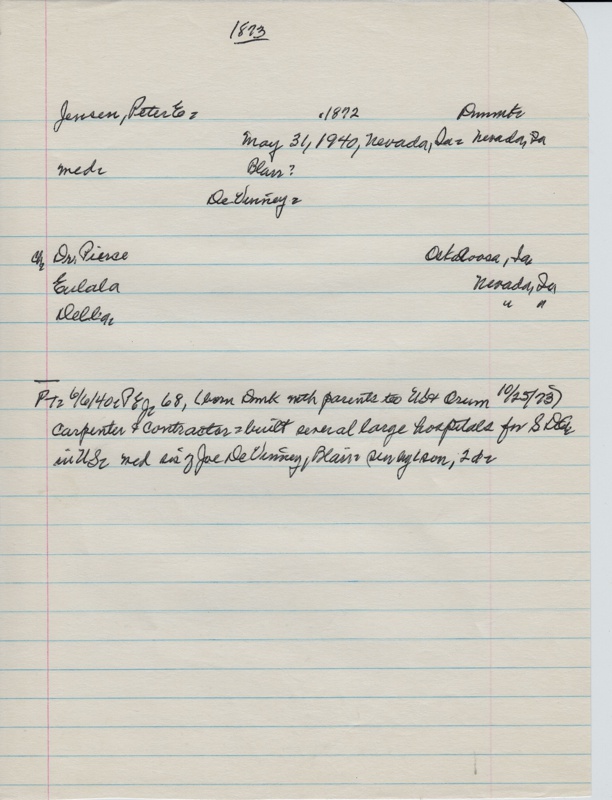 1873
Jensen, Peter E= c1872 Dnmk=
May 31, 1940, Nevada, Ia= Nevada, Ia
med= Blair?
DeVinney=
ch= Dr. Pierse Oskaloosa, Ia
Eulala Nevada, Ia
Della= " "
PT= 6/6/40= PEJ= 68, (born Dnmk with parents to US & Orum 10/25/73)
carpenter & contractor= built several large hospitals for SDA=
in US= med sis of Joe DeVinney, Blair= sur by 1 son, 2 d=